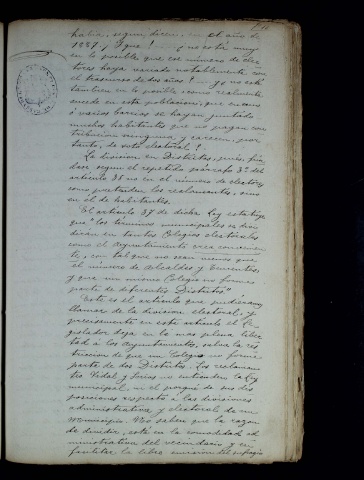 habia, segun dicen, en el año de
1887 y ¿que? ¿no está muy
en lo posible que ese número de elec-
tores haya variado notablemente con
el trascurso de dos años? ¿y no está
tambien en lo posible, como realmente
sucede en esta poblacion, que en uno
ó varios barrios se hayan juntado
muchos habitantes que no pagan con-
tribucion ninguna y carecen, por
tanto, de voto electoral?
La division en Distritos, pues, fún-
dase segun el repetido párrafo 3º del
artículo 35 no en el número de electores
como pretenden los reclamantes, sino
en el de habitantes.
El artículo 37 de dicha Ley estatuye
que "los términos municipales se divi-
dirán en tantos Colegios electorales
como el Ayuntamiento crea convenien-
te, con tal que no sean menos que
el número de Alcaldes y Tenientes,
y que un mismo Colegio no forme
parte de diferentes Distritos"
Este es el artículo que pudiéramos
llamar de la division electoral, y
precisamente en este artículo el Le-
gislador deja en la mas plena liber-
tad á los Ayuntamientos, salva la res-
triccion de que un Colegio no forme
parte de dos Distritos. Los reclaman-
tes Vidal y no entienden la Ley
municipal, ni el porqué de sus dis-
posiciones respecto á las divisiones
administrativa y electoral de un
municipio. No saben que la razon
de dividir, está en la comodidad ad-
ministrativa del vecindario y en
facilitar la libre emision del sufragio